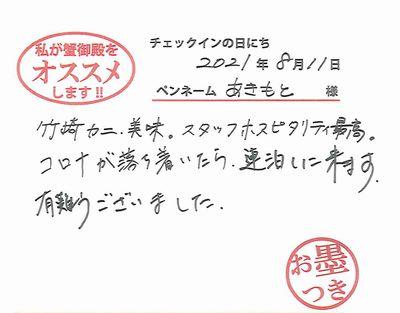 私が蟹御殿を
オススメ
します!!
チェックインの日にち
2021年8月11日
ペンネーム あきもと 様
竹崎カニ、美味。スタッフホスピタリティ最高。
コロナが落ち着いたら、連泊しに来ます。
有難うございました。
お墨
つき